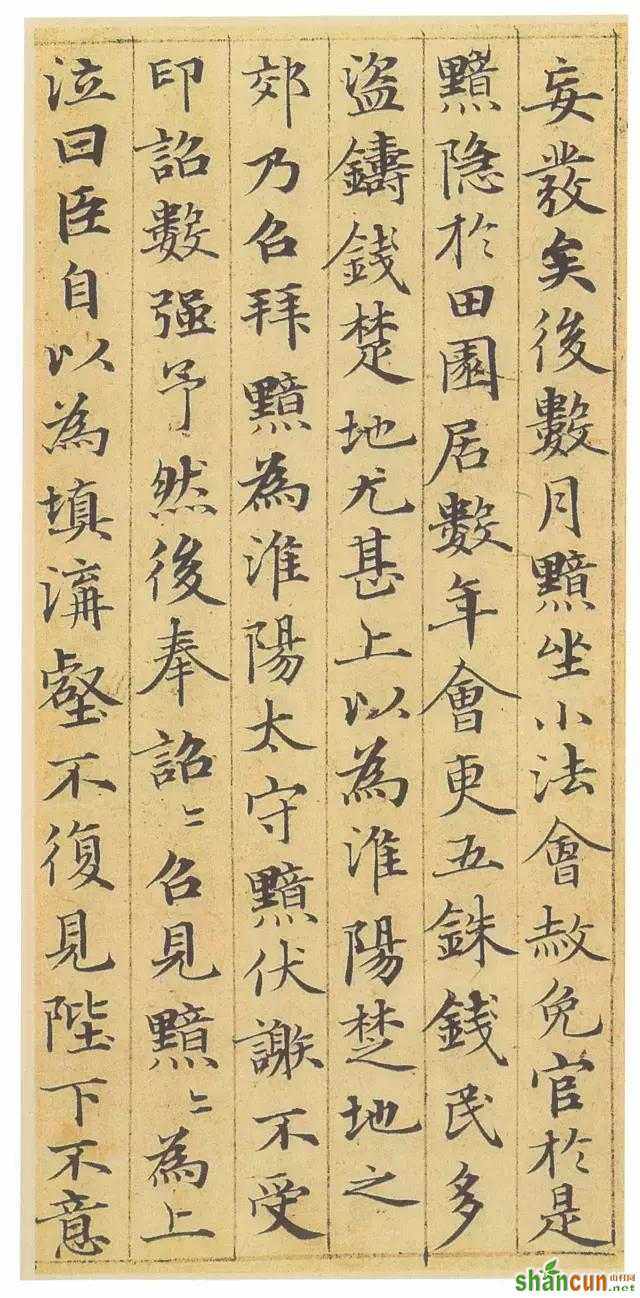 妄發矣後數月黯坐小法會赦免官於是
黯隐於田園居數年會更五銖錢民多
盜鑄錢楚地尤甚上以為淮陽楚地之
郊乃召拜黯為淮陽太守黯伏謝不受
印詔數强予然後奉詔〻召見黯〻為上
泣曰臣自以為填溝壑不復見陛下不意
shancun
山村网
.net